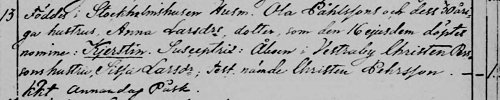 13 Föddes i Stockholmshusen Husm. Ola Påhlssons och dess Wäri-
ga hustrus, Anna Larsdrs, dotter, som den 14 ejusdem döptes
nomine: Kjerstin. Susceptrix: Åboen i Vestraby Christen Per-
sons hustru, Sissa Larsdr; Test. nämde Christen Pehrsson.
Annandag Påsk.